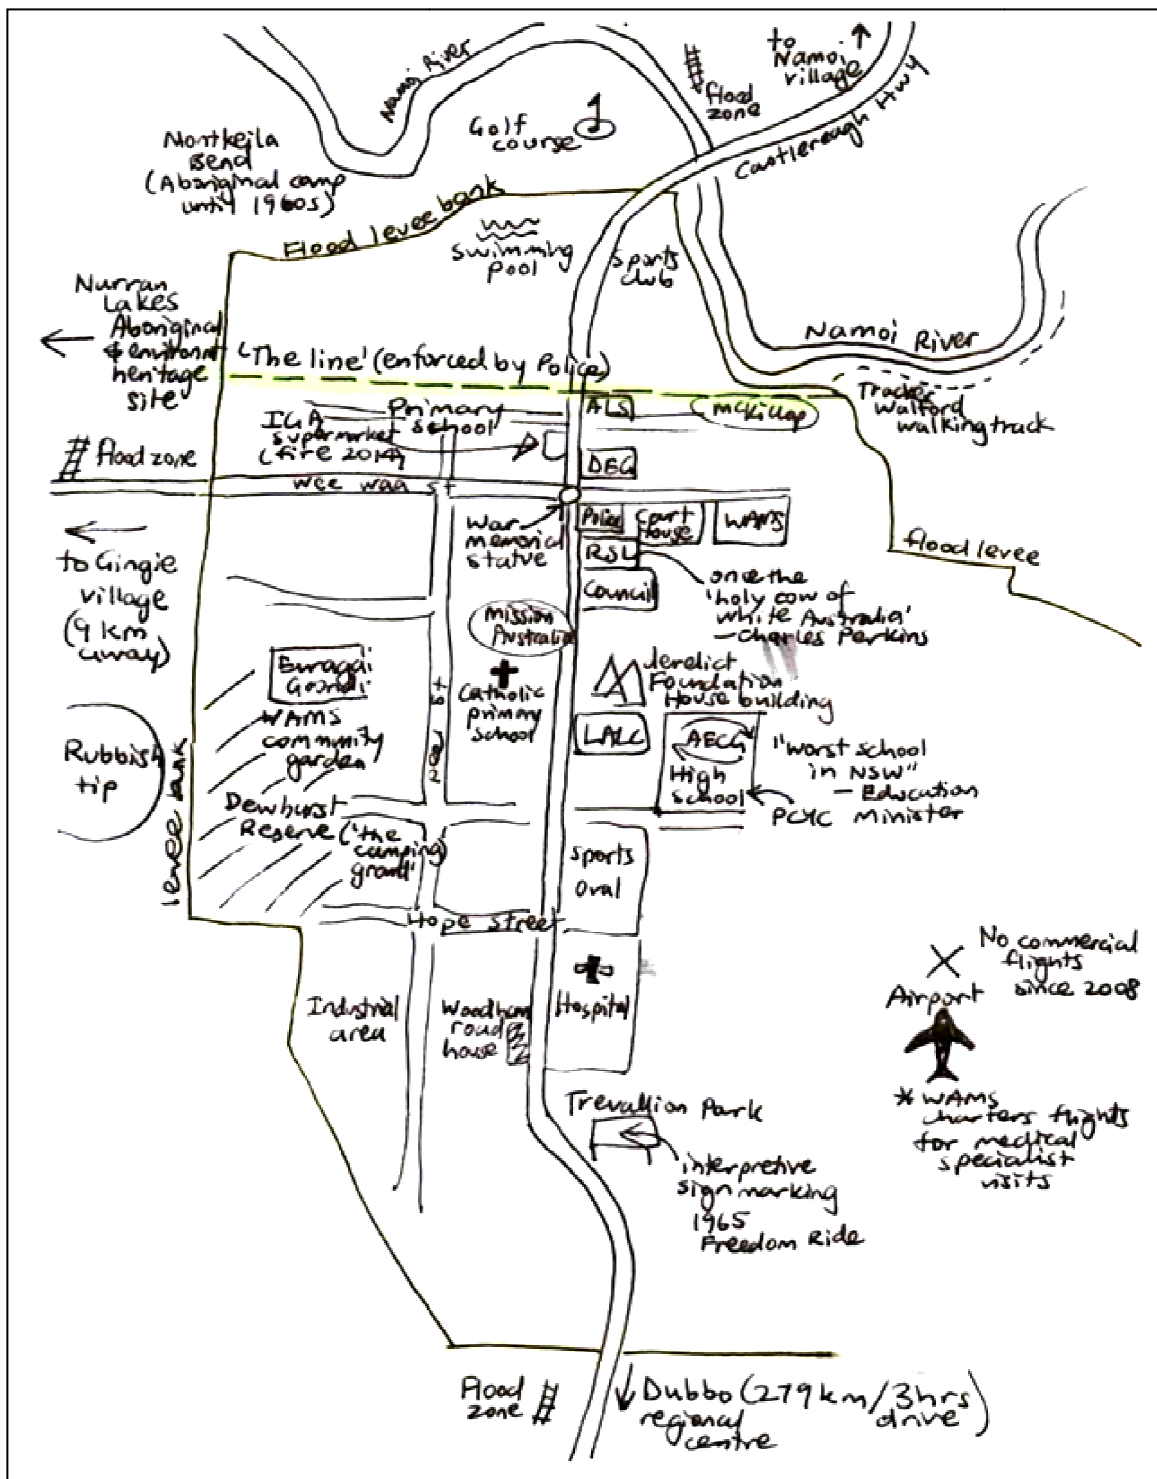 Namoi River
to
Namoi
village
flood
zone
Castlereagh Hwy
Golf
course
Montkeila
Bend
(Aboriginal camp
until 1960s)
Flood levee bank
swimming
pool
sports
club
Nurran
Lakes
Aboriginal
heritage
site
'The line' (enforced by Police)
Namoi River
Tracker
Walford
walking track
Primary
school
IGA
supermarket
(fire 2014)
ALS
McKillop
flood zone
DEC
wee waa st
War
memorial
statue
Police
Court
House
WAMS
RSL
Council
once the
'holy cow of
white Australia'
- Charles Perkins
flood levee
to Gingie
village
(9 km
away)
Mission
Australia
Euragai
Goondi
WAMS
commnity
garden
Catholic
primary
school
derelict
Foundation
House building
LALC
AECG
High
school
"worst school
in NSW"
- Education
Minister
PCYC
Rubbish
tip
levee bank
Dewhurst
Reserve ('the
camping
grand'
sports
oval
Hope Street
Industrial
area
road
house
Hospital
No commercial
flights
since 2008
Airport
* WAMS
charters flights
for medical
specialist
visits
Trevallion Park
interpretive
sign marking
1965
Freedom Ride
Flood
zone
Dubbo (279km/3hrs
drive)
regional
centre